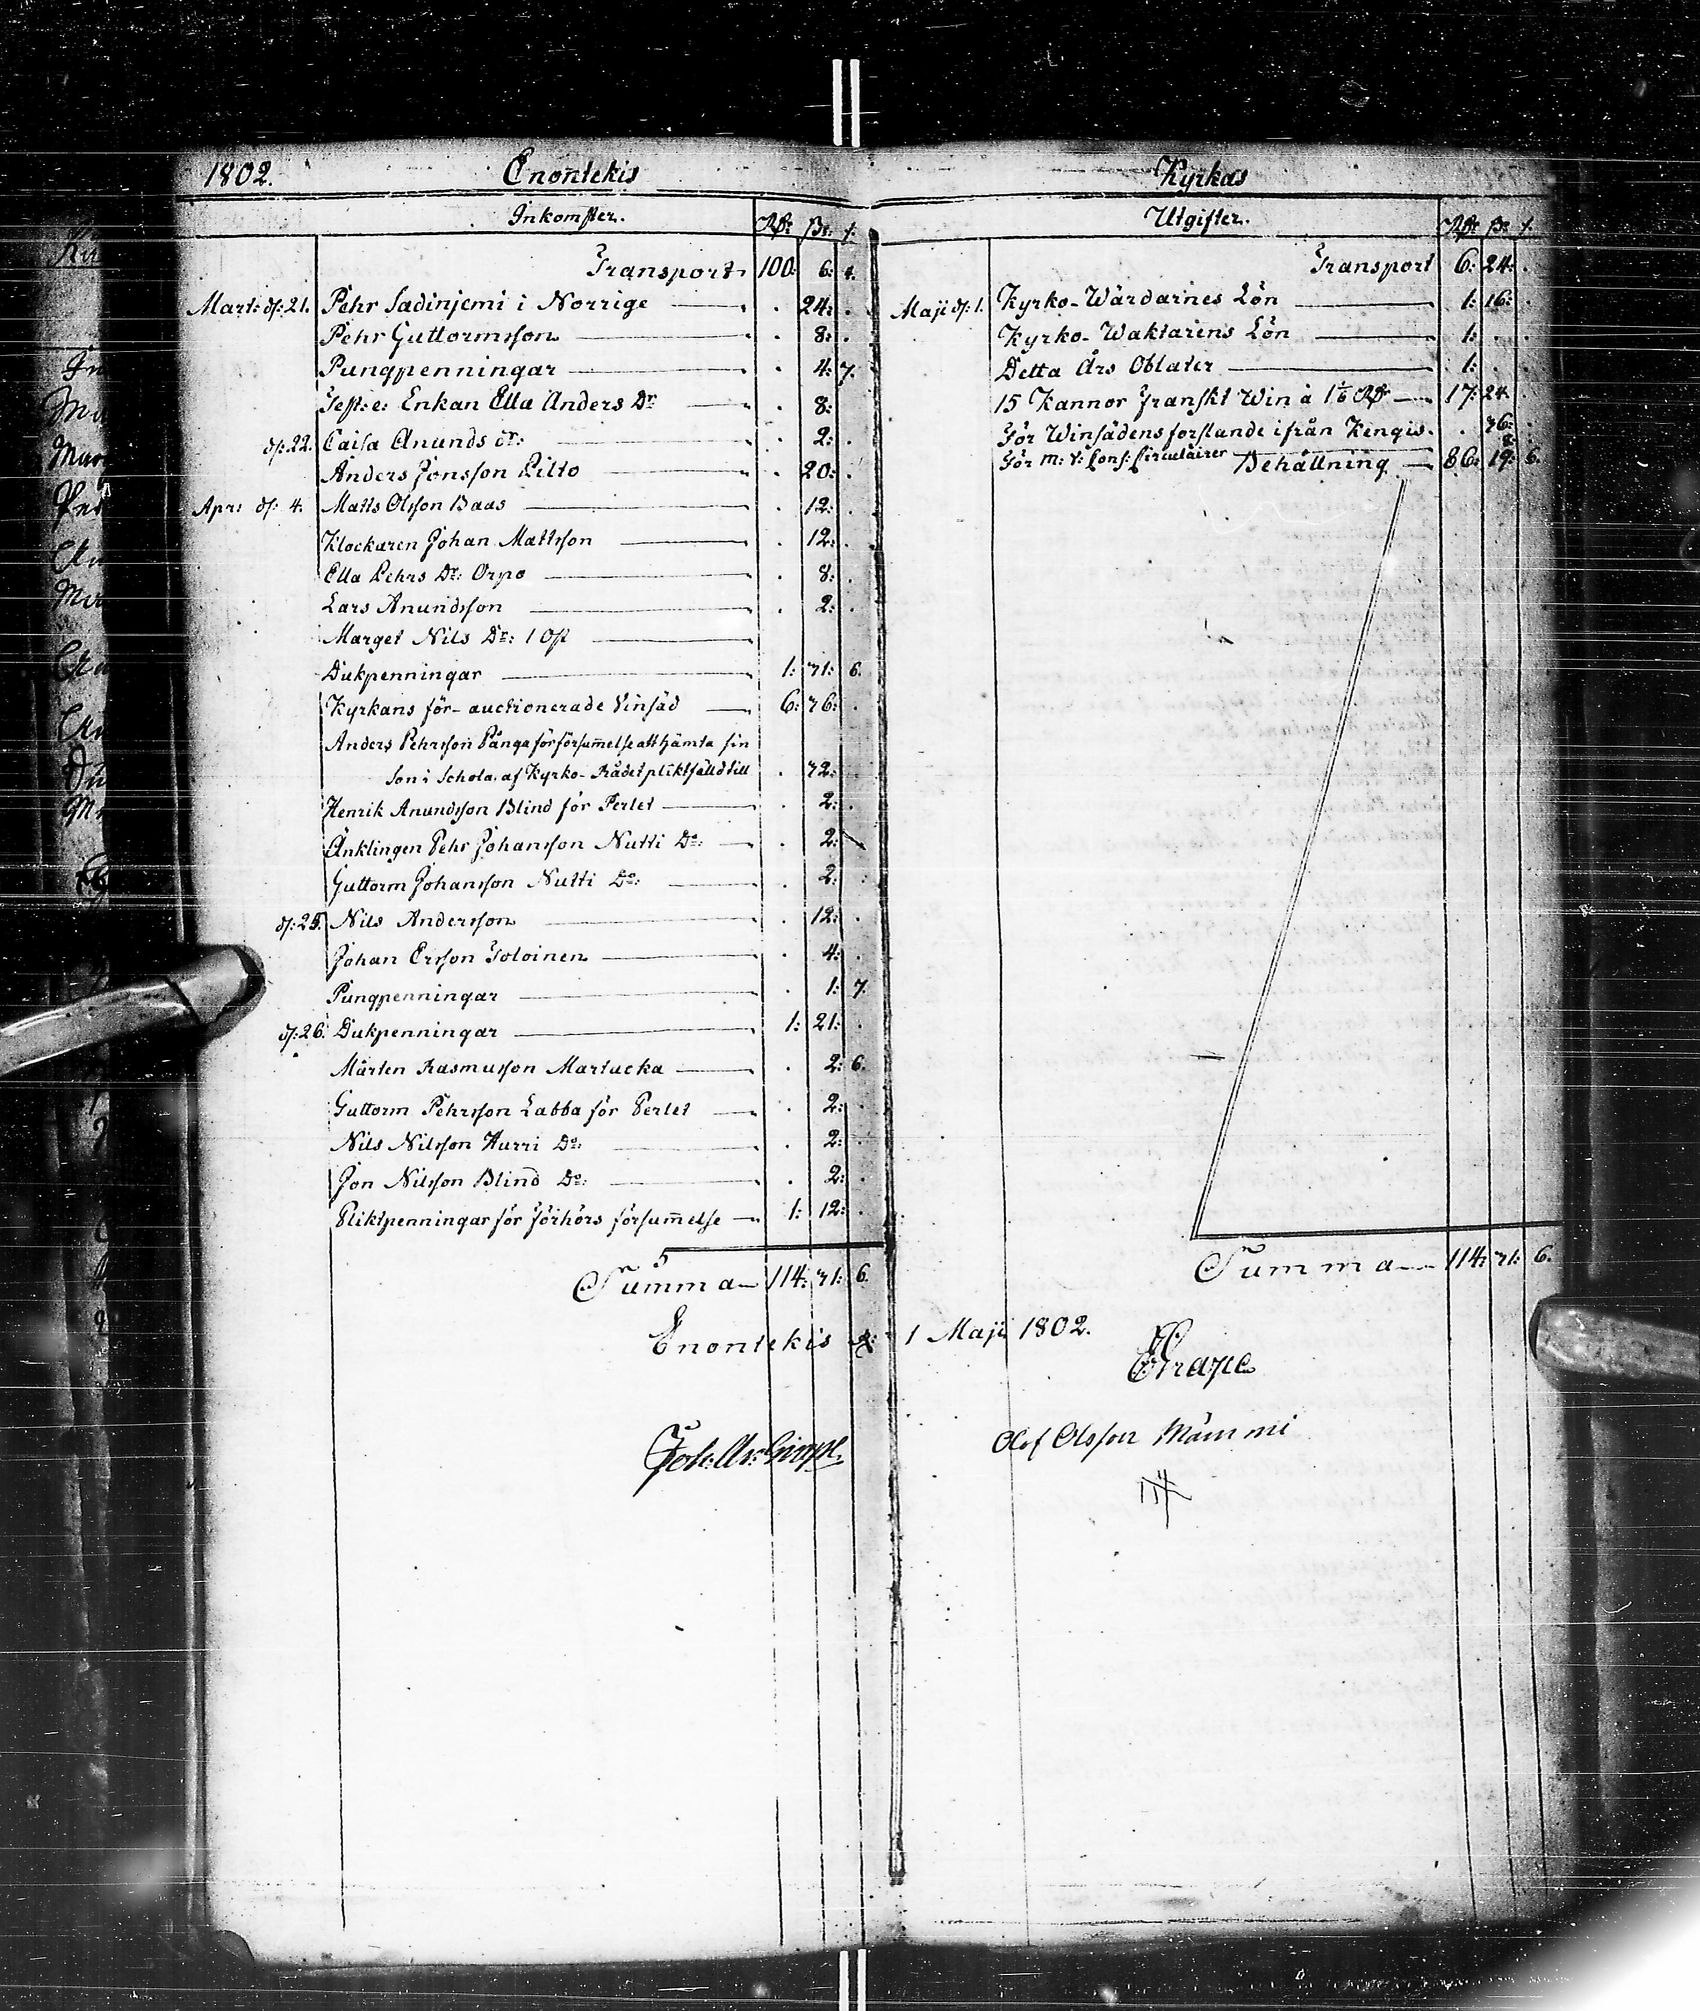 1802. Enontekis
Inkomster. Rdr: ßr: r:
Transport 100: 6: 4.
Mart: d: 21. Pehr Sadinjemi i Norrige . 24: .
Pehr Guttormsson . 8: .
Pungpenningar . 4: 7.
Test: e: Enkan Ella Anders Dr . 8:
d: 22. Caisa Anunds dr: . 2: .
Anders Jonsson Pilto . 20: .
Apr: d: 4. Matts Olsson Baas . 12: .
Klockaren Johan Mattsson . 12: .
Ella Pehrs Dr: Orpo . 8: .
Lars Anundsson . 2: .
Marget Nils Dr: 1 Ost
Dukpenningar 1: 31: 6.
Kyrkans för-auctionerade Vinsäd 6: 36: .
Anders Pehrsson Pånga för försum̄else att hämta sin
son i Schola. af Kyrko-Rådet pliktfälld till . 32:
Henrik Anundsson Blind för Pertet . 2: .
Änklingen Pehr Johansson Nutti Do: . 2:
Guttorm Johansson Nutti Do: . 2: .
d: 25. Nils Andersson . 12: .
Johan Ersson Soloinen . 4: .
Pungpenningar . 1: 7.
d: 26. Dukpenningar 1: 21: .
Mårten Rasmusson Martucka . 2: 6.
Guttorm Pehrsson Labba för Pertet . 2: .
Nils Nilsson Hurri Do: . 2: .
Jon Nilsson Blind Do: . 2: .
Pliktpenningar för Förhörs försum̄else 1: 12: .
Summa 114: 31: 6.
Kyrkas
Utgifter. Rdr ßr r.
Transport 6: 24: .
Maji d: 1. Kyrko-Wärdarnes Lön 1: 16: .
Kyrko-Waktarens Lön 1: . .
Detta Års Oblater 1: . .
15 Kannor Franskt Win à 1 1/6 Rdr 17: 24. .
För Winsädens forslande ifrån Kengis . 36: .
För M: V: Cons: Circulairer 8:
Behållning 86: 19: 6.
Summa 114: 31: 6.
Enontekis d: 1 Maji 1802.
Olof Olsson Mämmi